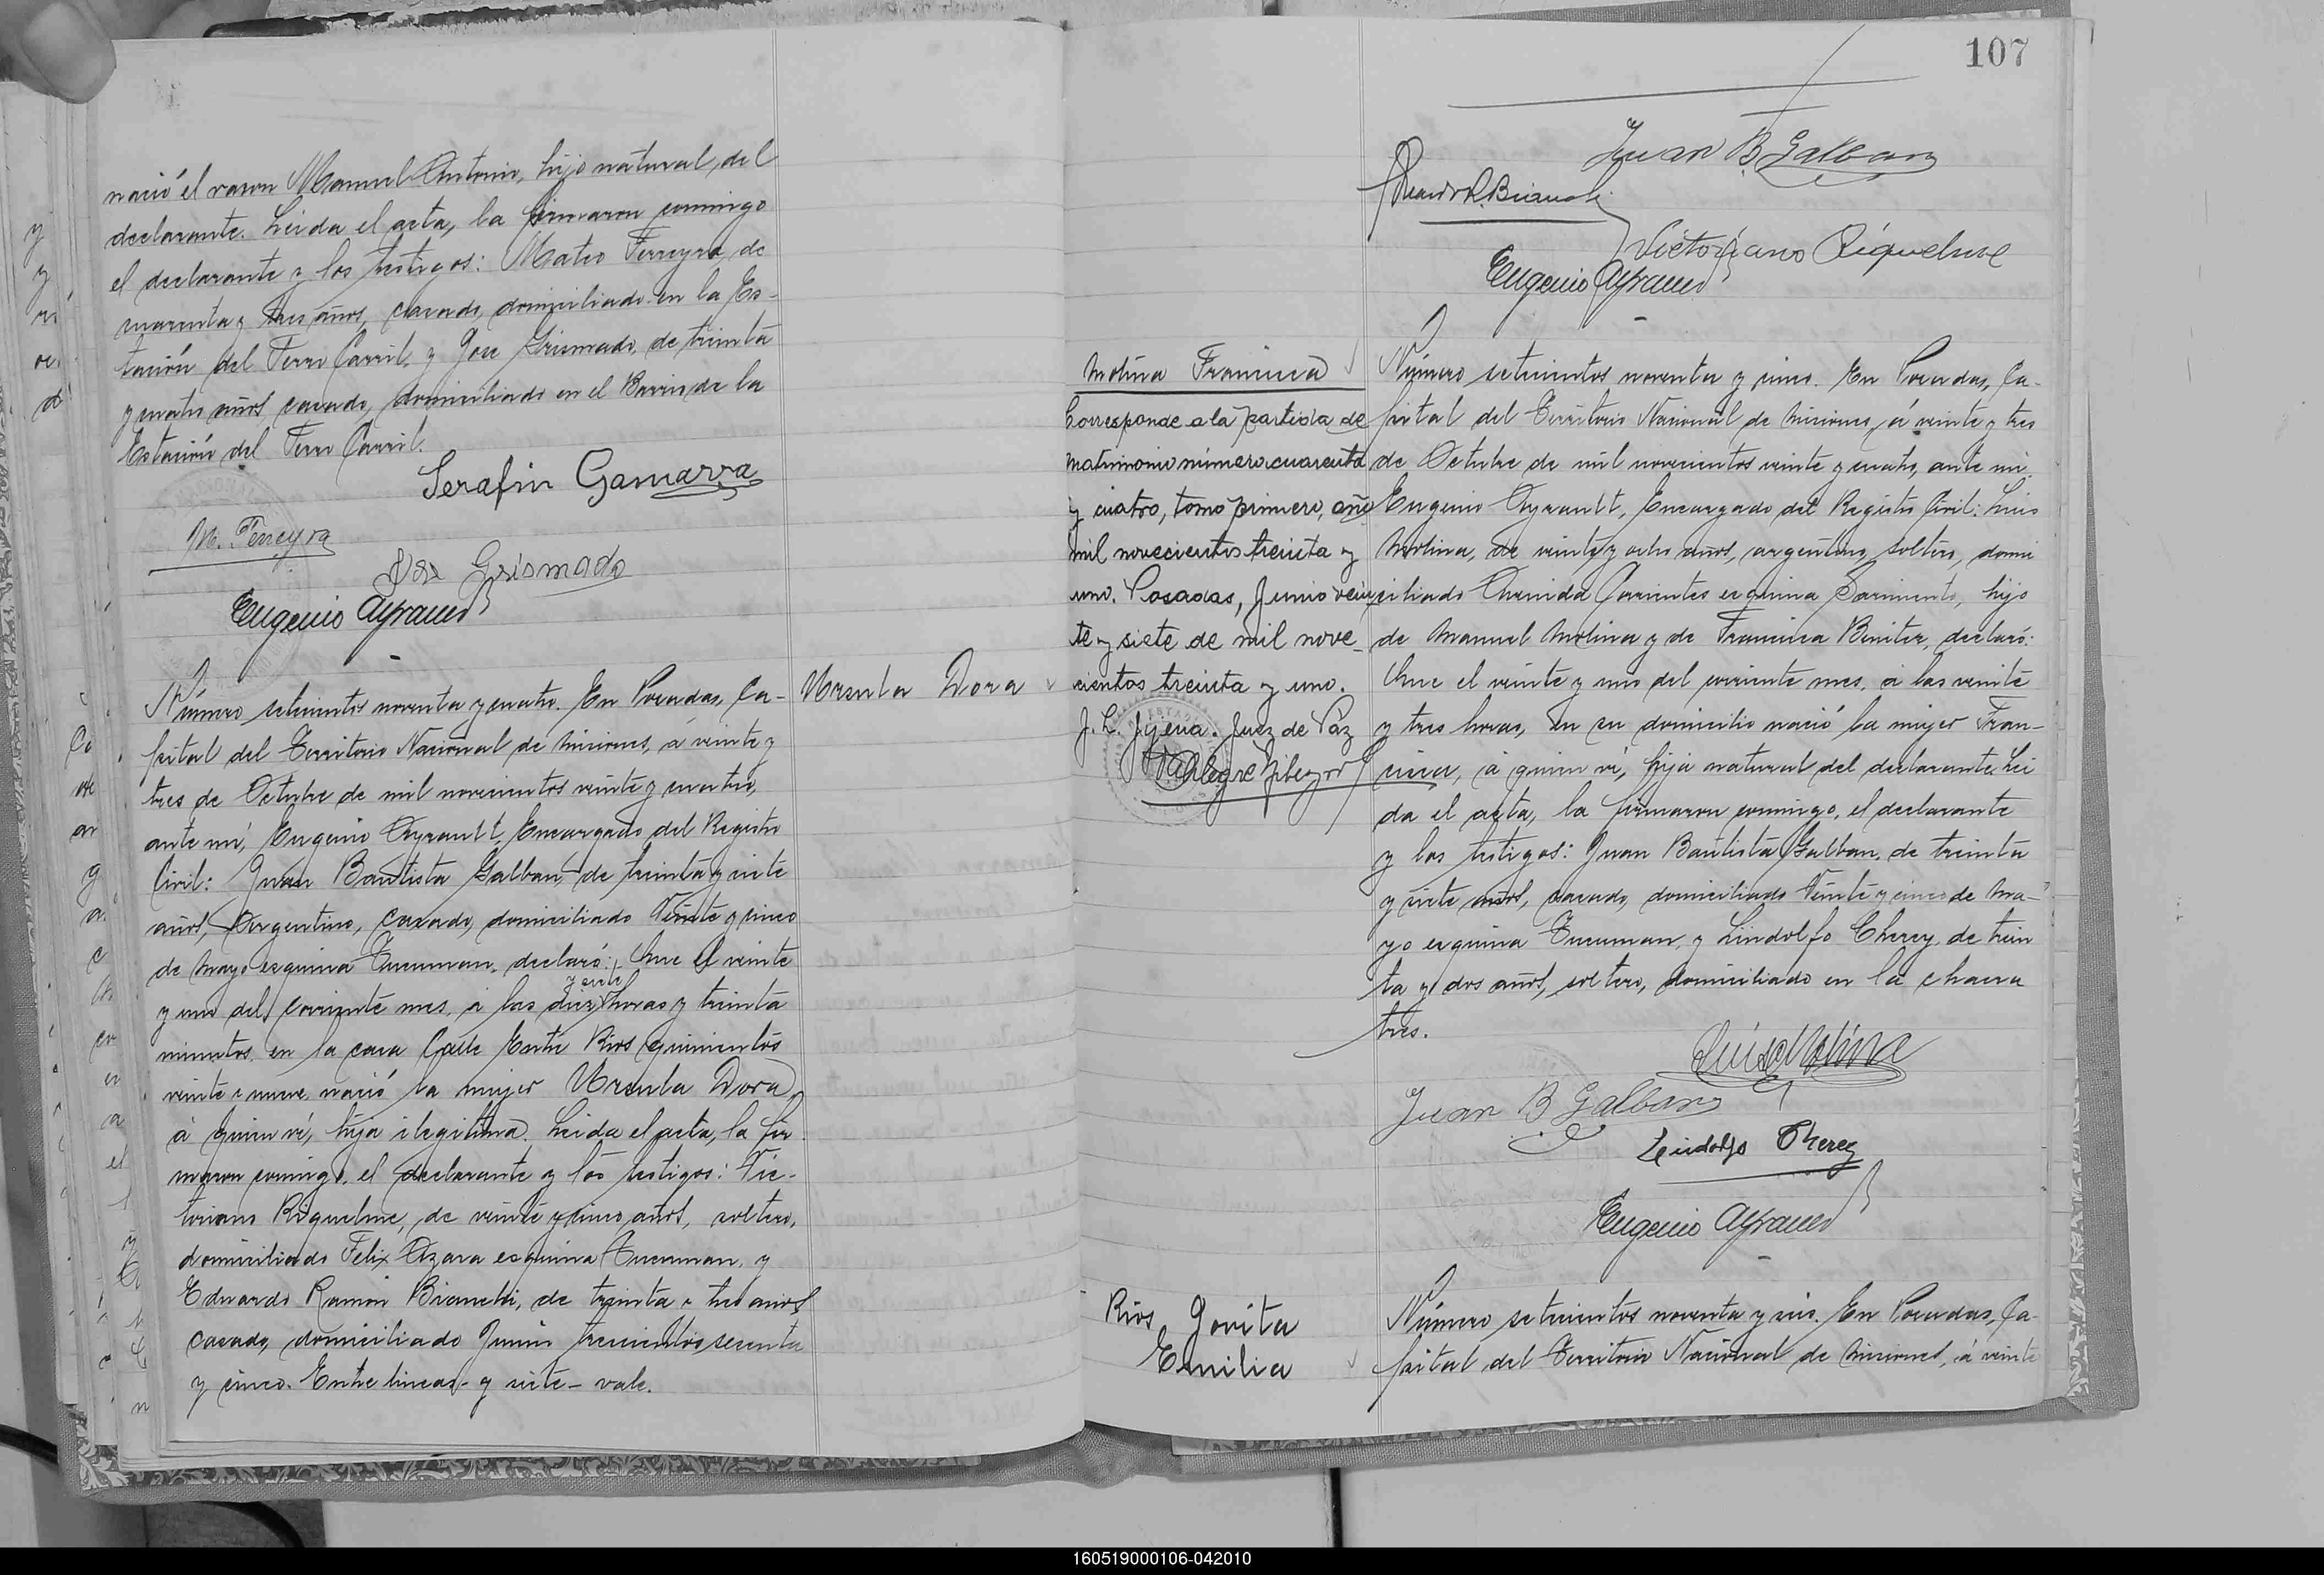 nació el varon Manuel Antonio, hijo natural del
declarante. Leida el acta, la firmaron conmigo
el declarante y los testigos: Mateo Ferreyra, de
cuarenta y tres años, casado, domiciliado en la Es-
tación del Ferro Carril, y Jose Grismado, de treinta
y cuatro años, casado, domiciliado en el Barrio de la
Estación del Ferro Carril.
Serafin Gamarra
M. Ferreyra
Jose Grismado
Eugenio Ayrault
Número setecientos noventa y cuatro. En Posadas, Ca-
pital del Territorio Nacional de Misiones, á veinte y
tres de Octubre de mil novecientos veinte y cuatro,
ante mi, Eugenio Ayrault, Encargado del Registro
Civil: Juan Bautista Galban, de treinta y siete
años, Argentino, casado, domiciliado Veinte y cinco
de Mayo esquina Tucuman, declaró: Que el veinte
y siete
y uno del corriente mes, á las diez horas y treinta
minutos, en la casa Calle Entre Rios quinientos
veinte i nueve nació la mujer Ursula Dora,
á quien ví, hija ilegitima. Leida el acta, la fir-
maron conmigo, el declarante y los testigos: Vic-
toriano Riquelme, de veinte y cinco años, soltero,
domiciliado Felix Azara esquina Tucuman, y
Eduardo Ramón Bianchi, de treinta i tres años,
casado, domiciliado Junin trescientos sesenta
y cinco. Entre lineas- y siete- vale.
Ursula Dora
107
Juan B Galban
Eduardo R. Bianchi
Victoriano Riquelme
Eugenio Ayrault
Molina Francisca
Corresponde a la partida de
matrimonio número cuarenta
y cuatro, tomo primero, año
mil novecientos treinta y
uno. Posadas, Junio vein
te y siete de mil nove_
cientos treinta y uno.
J. L. Jijena. Juez de Paz
Número setecientos noventa y cinco. En Posadas, Ca-
pital del Territorio Nacional de Misiones, á veinte y tres
de Octubre de mil novecientos veinte y cuatro, ante mi,
Eugenio Ayrault, Encargado del Registro Civil: Luis
Molina, de veinte y ocho años, argentino, soltero, domi
ciliado Avenida Corrientes esquina Sarmiento, hijo
de Manuel Molina y de Francisca Benitez, declaró:
Que el veinte y uno del corriente mes, á las veinte
y tres horas, en su domicilio nació la mujer Fran-
cisca, á quien ví, hija natural del declarante. Lei
da el acta, la firmaron conmigo, el declarante
y los testigos: Juan Bautista Galban, de treinta
y siete años, casado, domiciliado Veinte y cinco de Ma-
yo esquina Tucuman, y Lindolfo Cherey, de trein
ta y dos años, soltero, domiciliado en la chacra
tres.
Luis Molina
Juan B Galban
Lindolfo Cherey
Eugenio Ayrault
Rios Jovita
Emilia
Número setecientos noventa y seis. En Posadas, Ca-
pital del Territorio Nacional de Misiones, á veinte
160519000106-042010